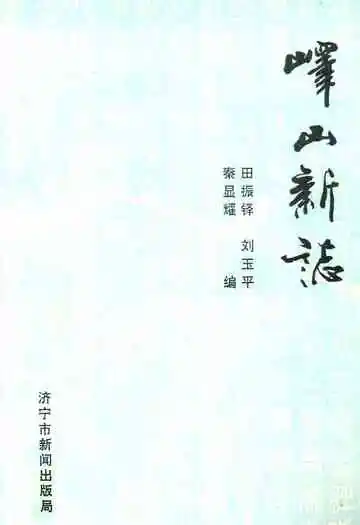 嶧山新誌
田振铎 刘玉平
秦显耀 编
济宁市新闻出版局